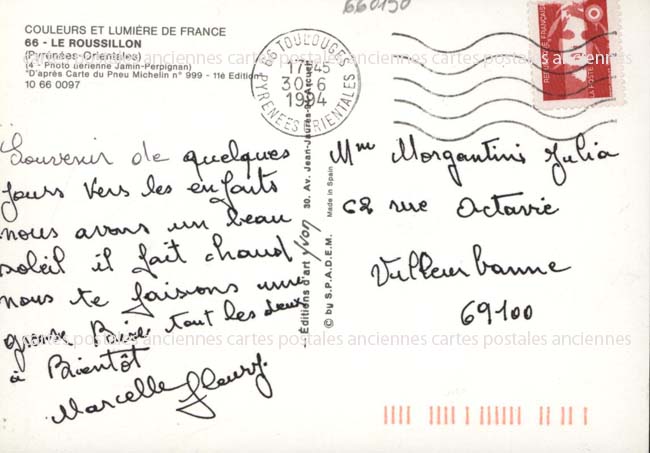 660190
COULEURS ET LUMIÈRE DE FRANCE
66 - LE ROUSSILLON
(Pyrénées-Orientales)
(4 - Photo aérienne Jamin-Perpignan)
"D'après Carte du Pneu Michelin n° 999 - 11è Edition"
10 66 0097
66 TOULOUGES
17H45
30-6
1994
PYRENEES ORIENTALES
REPUBLIQUE FRANÇAISE
LA POSTE
Souvenir de quelques
jours vers les enfants
nous avons un beau
soleil il fait chaud
nous te faisions une
grosse Bise tout les deux
à Bientôt
Marcelle Fleury.
Editions d'art YVON 30, Av. Jean-Jaurès
© by S.P.A.D.E.M. Made in Spain
Mme Morgantini Julia
62 rue Octavie
Villeurbanne
69100
cartes postales anciennes cartes postales anciennes cartes postales anciennes
cartes postales anciennes cartes postales anciennes cartes postales anciennes